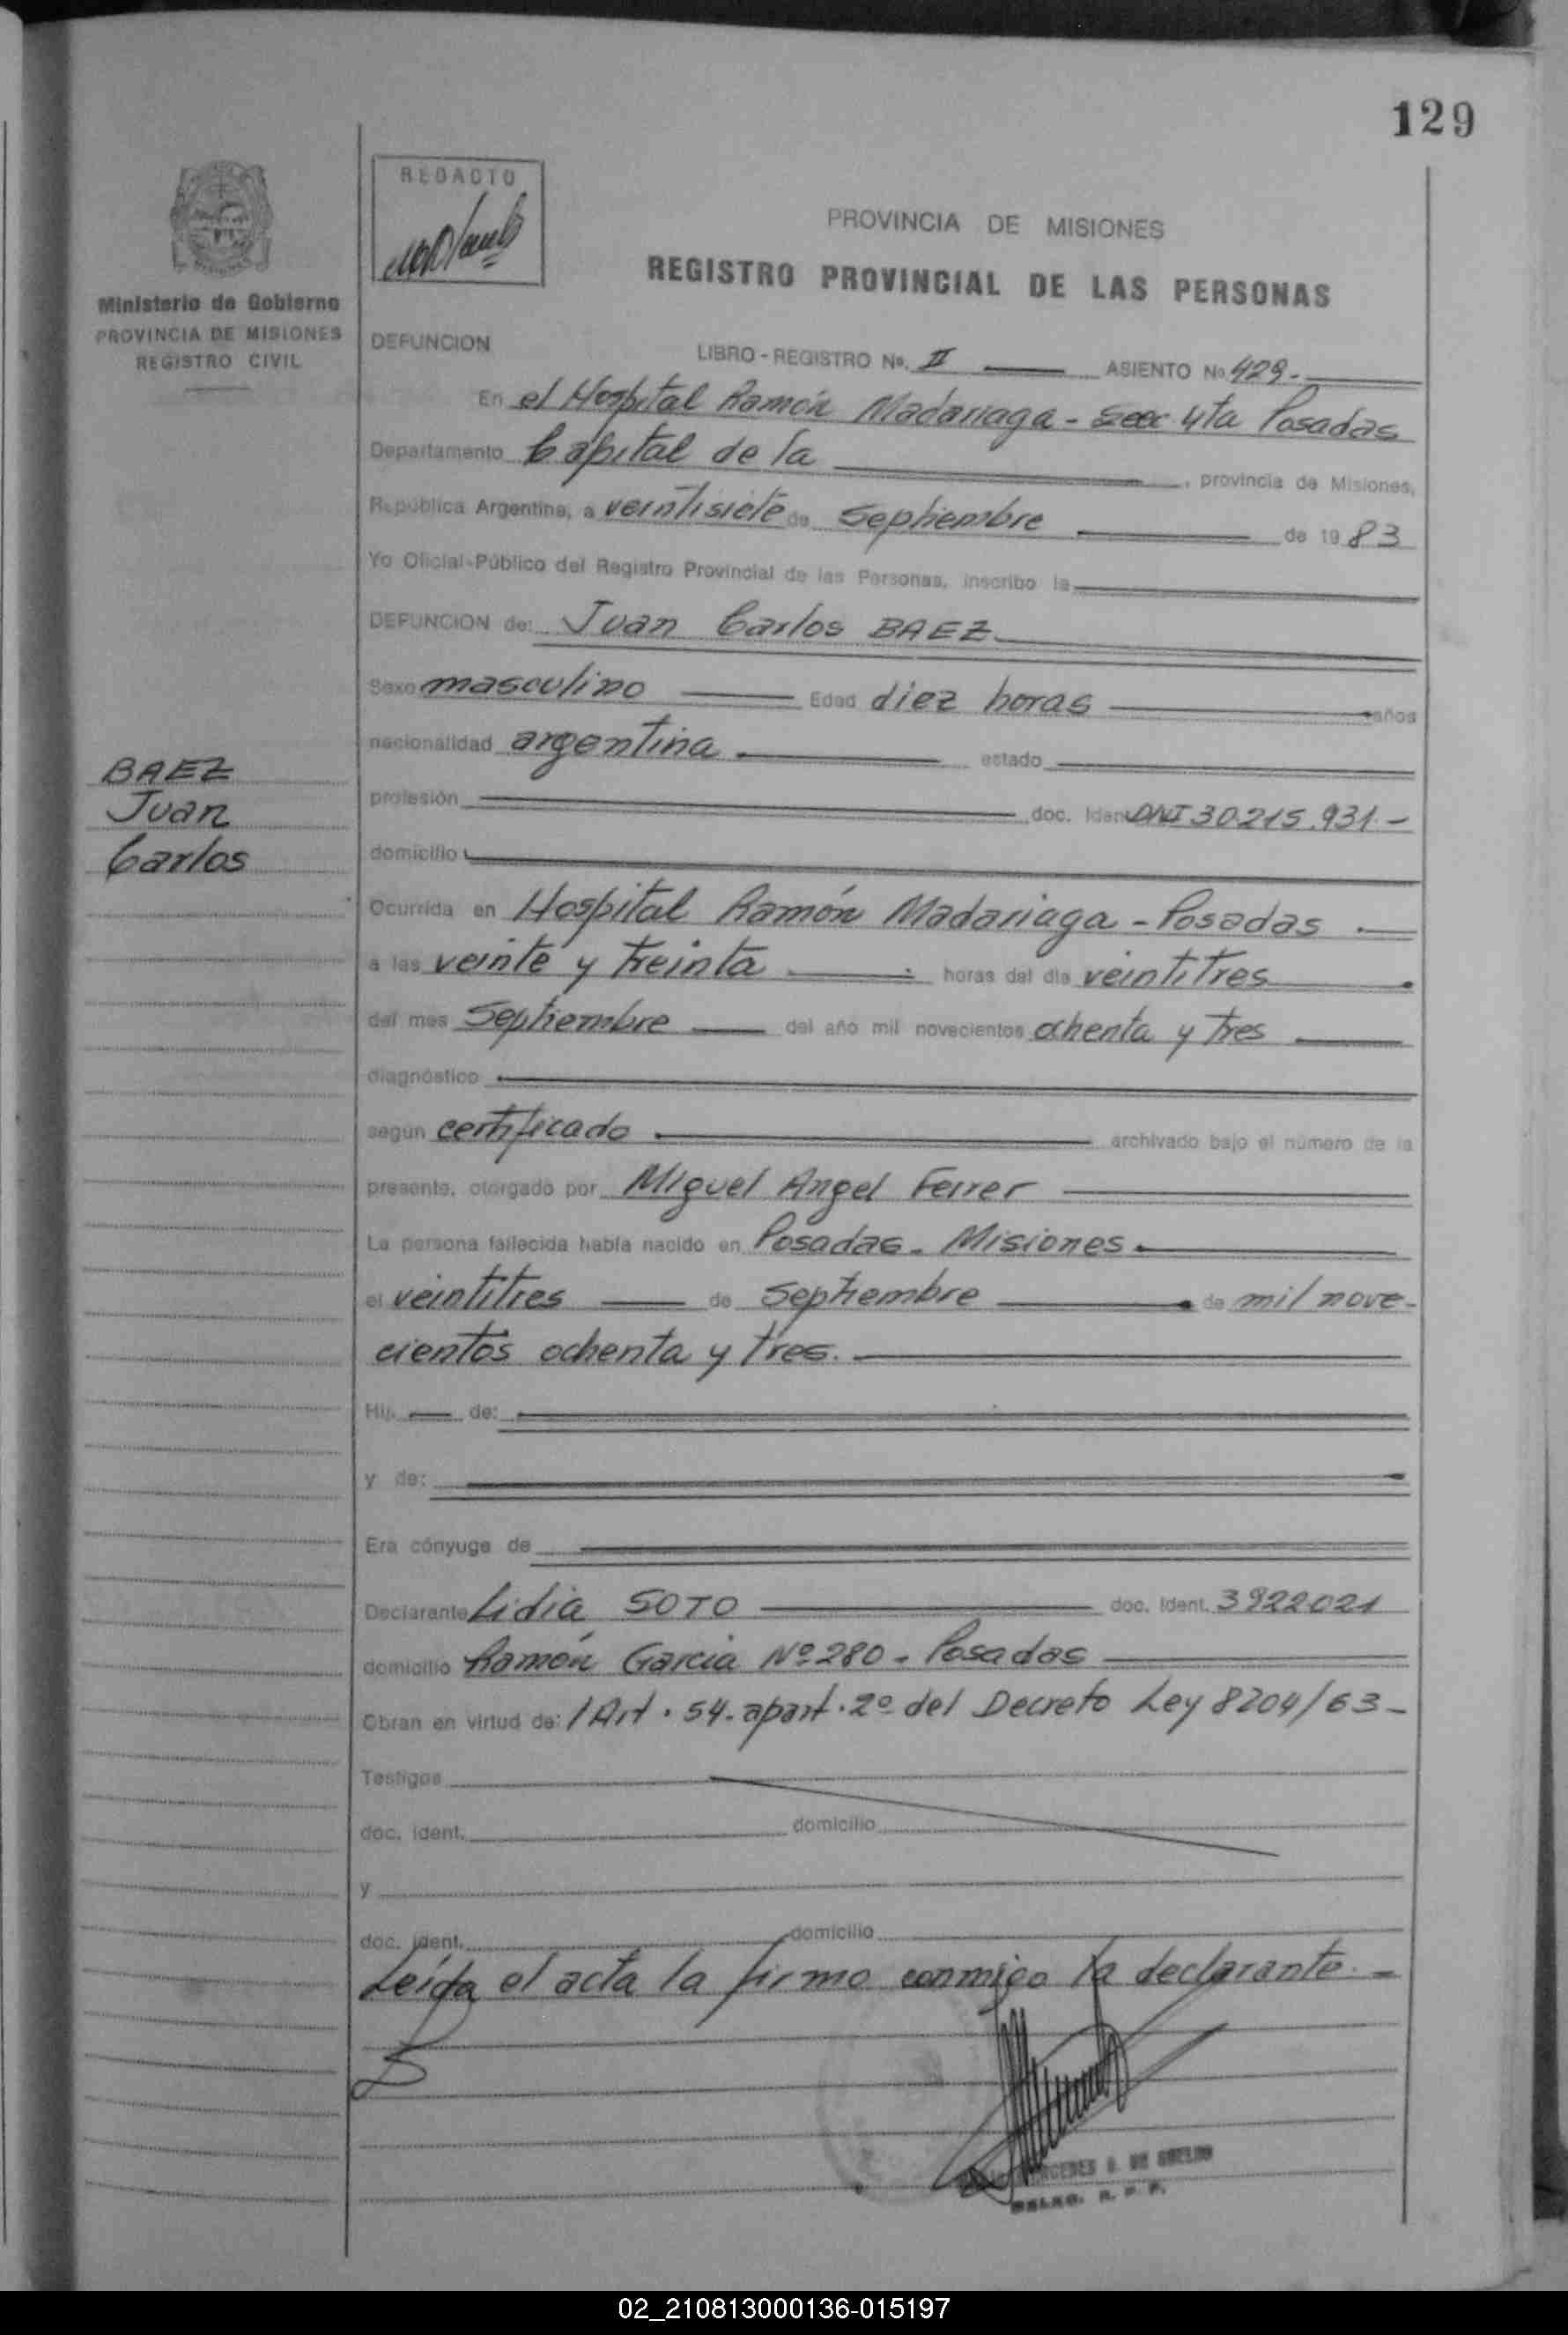 129
REDACTO
PROVINCIA DE MISIONES
REGISTRO PROVINCIAL DE LAS PERSONAS
Ministerio de Gobierno
PROVINCIA DE MISIONES
REGISTRO CIVIL
DEFUNCION
LIBRO - REGISTRO No. II ASIENTO No 429.-
En el Hospital Ramón Madariaga - Secc 4ta Posadas
Departamento Capital de la , provincia de Misiones,
República Argentina, a veintisiete de Septiembre de 19 83
Yo Oficial-Público del Registro Provincial de las Personas, inscribo la
DEFUNCION de: Juan Carlos BAEZ
Sexo masculino Edad diez horas años
nacionalidad argentina estado
BAEZ
Juan
Carlos
profesión doc. Ident DNI 30.215.931.-
domicilio
Ocurrida en Hospital Ramón Madariaga - Posadas
a las veinte y treinta horas del día veintitres
del mes Septiembre del año mil novecientos ochenta y tres
diagnóstico
según certificado archivado bajo el número de la
presente, otorgado por Miguel Angel Ferrer
La persona fallecida había nacido en Posadas - Misiones
el veintitres de Septiembre de mil nove-
cientos ochenta y tres.
Hij de:
y de:
Era cónyuge de
Declarante Lidia SOTO doc. Ident. 3922021
domicilio Ramón Garcia Nº 280 - Posadas
Obran en virtud de: / Art. 54- apart. 2º del Decreto Ley 8204/63-
Testigos
doc. ident. domicilio
y
doc. ident. domicilio
Leída el acta la firmo conmigo la declarante.-
DE
DELEG. R. P. P.
02_210813000136-015197